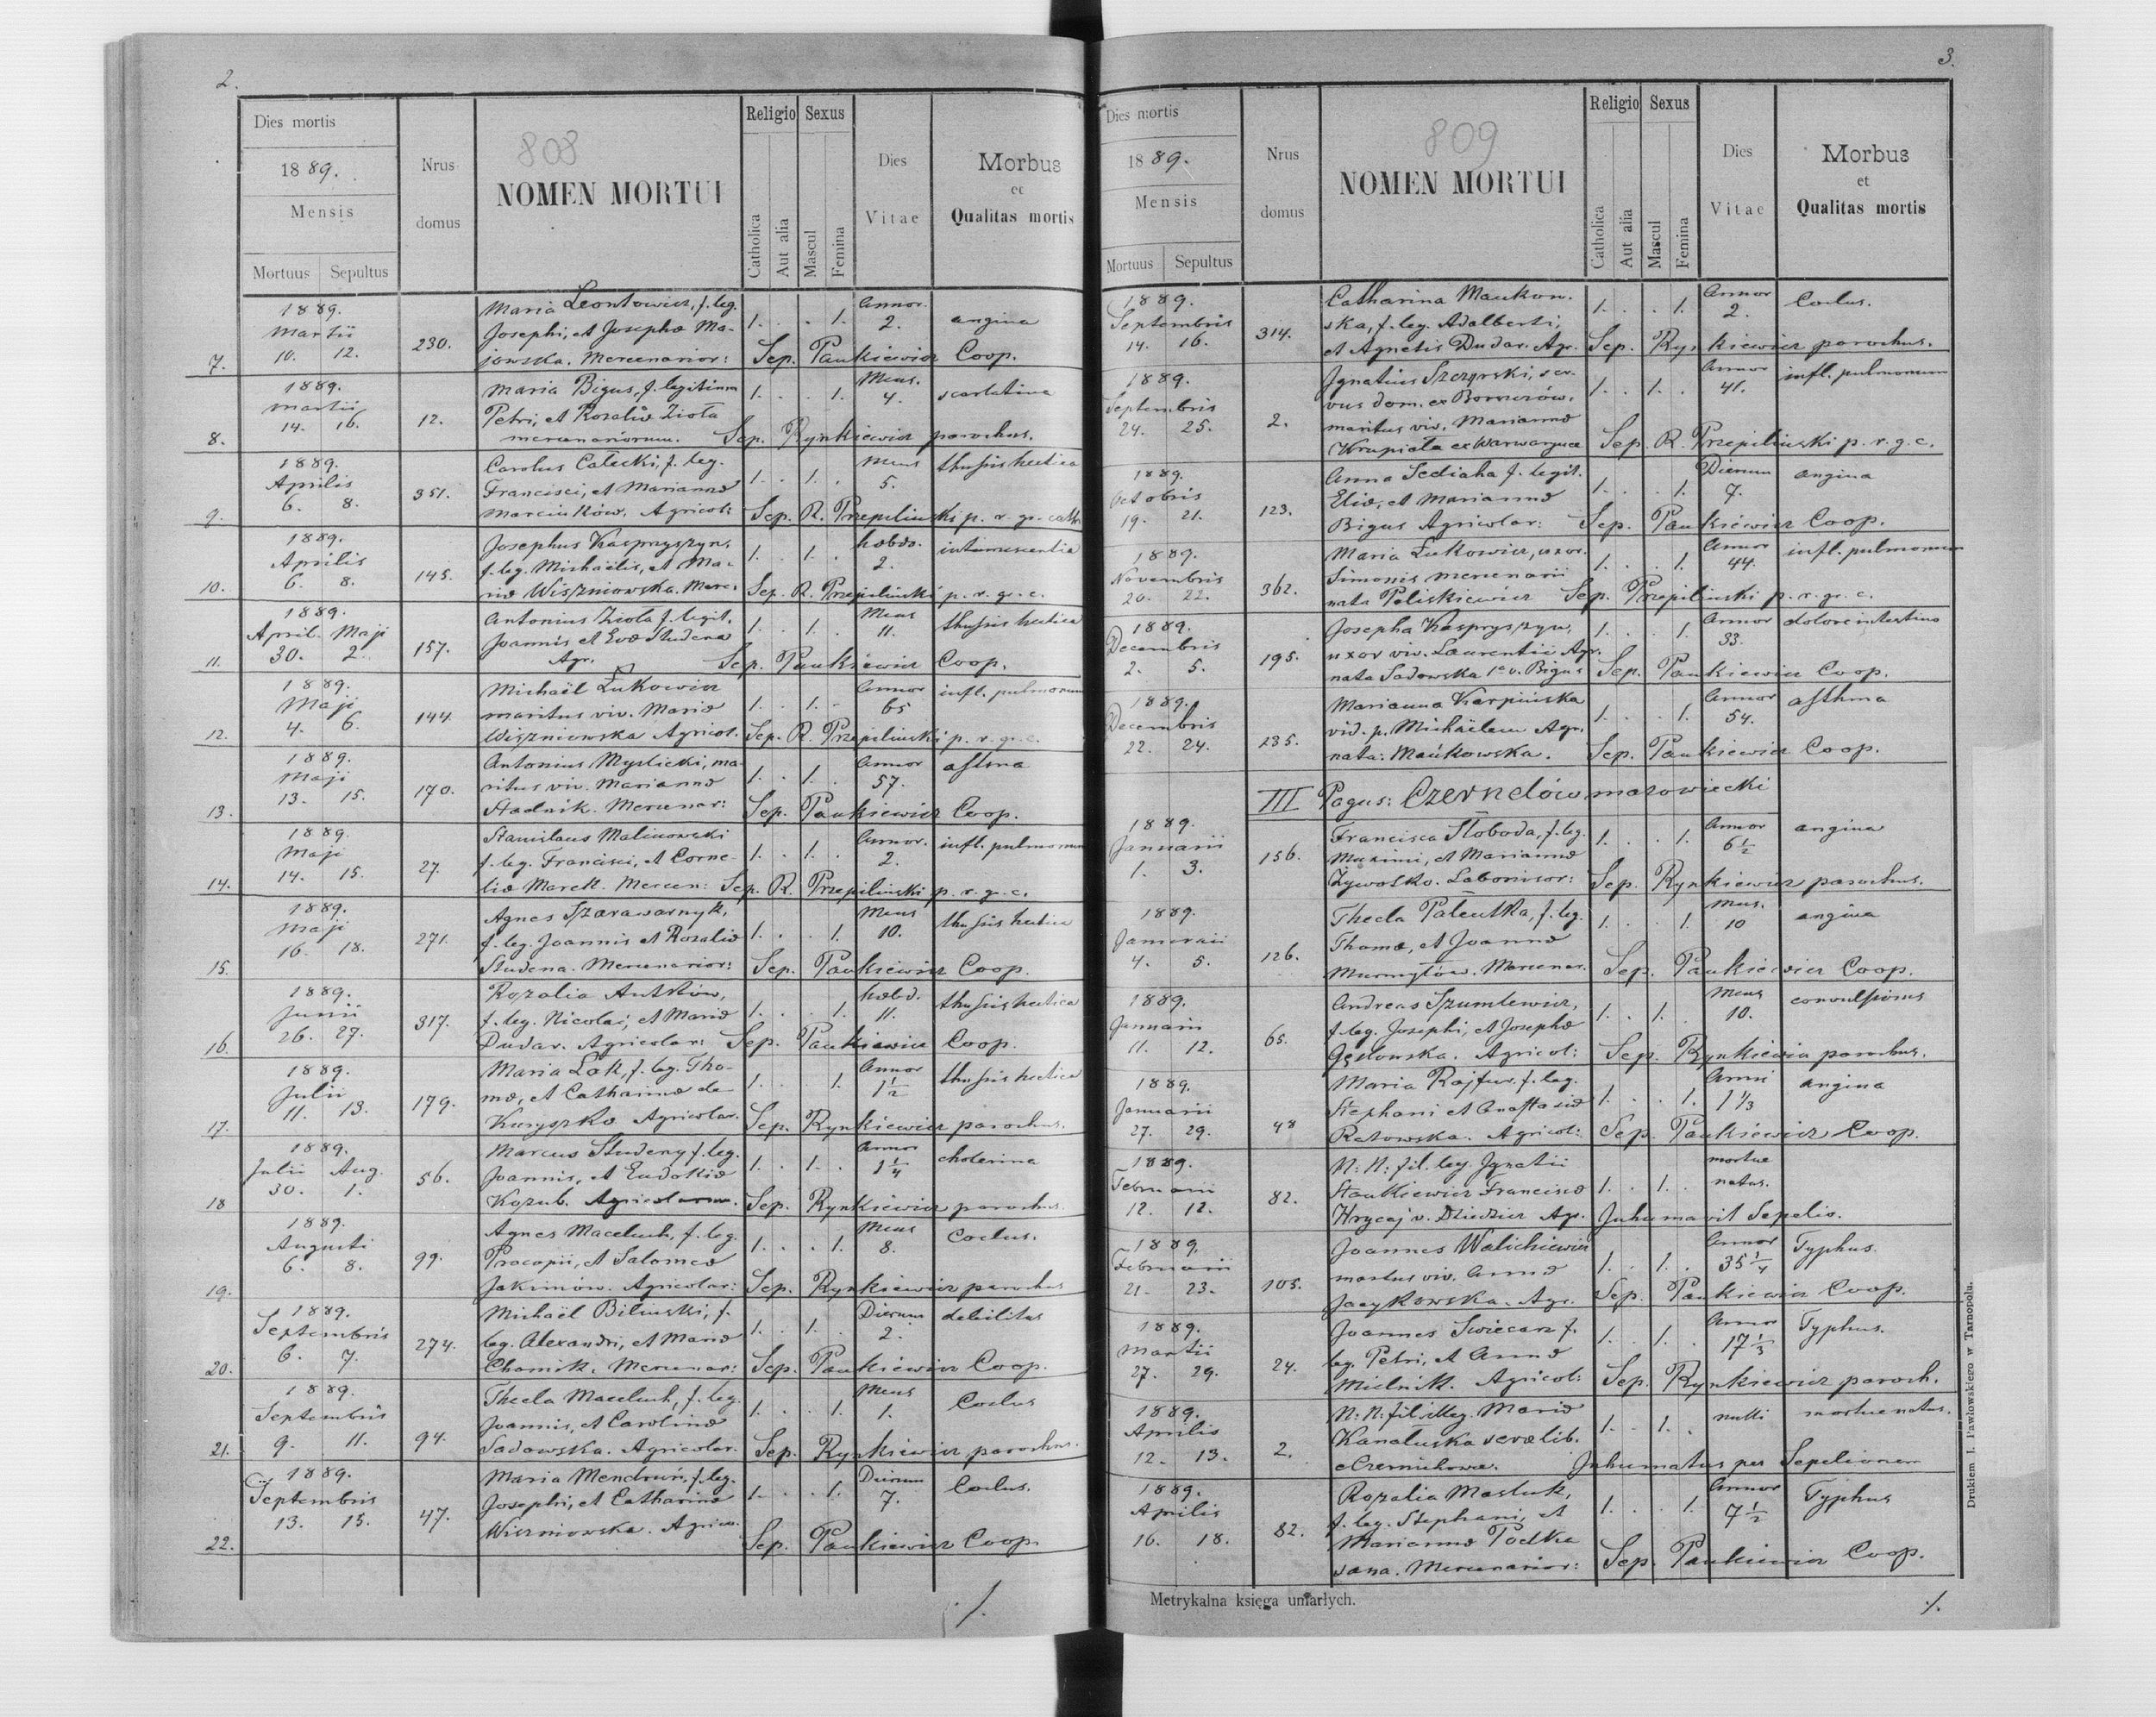 2.
Dies mortis
1889.
Mensis
Mortuus Sepultus
Nrus domus
808
NOMEN MORTUI
Religio Sexus
Catholica
Aut alia
Mascul
Femina
Dies Vitae
Morbus
et
Qualitas mortis
1889. Maria Leontowicz, f. leg. Annor.
Martii Josephi, et Josephæ Ma- 1. 1. 2. angina
7. 10. 12. 230. jowska. Mercenarior: Sep. Pankiewicz Coop.
1889. Maria Bigus, f. legitima Mens.
Martii 1. 1. 4. scarlatina
14. 16. 12. Petri, et Rozaliæ Zioła
8. mercenariorum. Sep. Rynkiewicz parochus.
1889. Carolus Calecki, f. leg. Mens thussis hectica
Aprilis 351. Francisci, et Mariannæ 1. 1. 5.
9. 6. 8. Marciuków. Agricol: Sep. R. Przepiliński p. r. gr. cath
1889. Josephus Kaspryszyn, hebdo. intumescentia
Aprilis 145. f. leg. Michaëlis, et Ma- 1. 1. 2.
10. 6. 8. riæ Wiszniowska. Merc: Sep. R. Przepiliński p. r. gr. c.
1889. Antonius Zioła f. legit. Mens thussis hectica
April. Maji Joannis et Evæ Studena 1. 1. 11.
11. 30. 2. 157. Agr. Sep. Pankiewicz Coop.
1889. Michaël Łukowicz Annor infl. pulmonum
Maji 144. maritus viv. Mariæ 1. 1. 65
12. 4. 6. Wiszniowska Agricol. Sep. R. Przepiliński p. r. gr. c.
1889. Antonius Myslicki, ma- Annor astma
Maji 170. ritus viv. Mariannæ 1. 1. 57.
13. 13. 15. Stadnik. Mercenar: Sep. Pankiewicz Coop.
1889. Stanislaus Malinowski Annor. infl. pulmonum
Maji 27. f. leg. Francisci, et Corne- 1. 1. 2.
14. 14. 15. liæ Marek. Mercen: Sep. R. Przepiliński p. r. g. c.
1889. Agnes Szarawarnyk, Mens thussis hectica
Maji 271. f. leg. Joannis et Rozaliæ 1. 1. 10.
15. 16. 18. Studena. Mercenarior: Sep. Pankiewicz Coop.
1889. Rozalia Antków, hebd. thussis hectica
Junii 317. f. leg. Nicolai, et Mariæ 1. 1. 11.
16. 26. 27. Dudar. Agricolar: Sep. Pankiewicz Coop.
1889. Maria Łak, f. leg. Tho- Annor thussis hectica
Julii 179. mæ, et Catharinæ de 1. 1. 1 1/2
17. 11. 13. Kuryszko Agricolar. Sep. Rynkiewicz parochus.
1889. Marcus Studeny f. leg. Annor cholerina
Julii Aug. 56. Joannis, et Eudokiæ 1. 1. 1 1/4
18 30. 1. Kozub. Agricolarum. Sep. Rynkiewicz parochus.
1889. Agnes Maceluch, f. leg. Mens Coclus.
Augusti 99. Procopii, et Salomeæ 1. 1. 8.
19. 6. 8. Jakimów. Agricolar: Sep. Rynkiewicz parochus
1889. Michaël Biliński, f. Dierum debilitas
Septembris 274. leg. Alexandri, et Mariæ 1. 1. 2.
20. 6. 7. Chomik. Mercenar: Sep. Pankiewicz Coop.
1889. Thecla Maceluch, f. leg Mens Coclus
Septembris 94. Joannis, et Carolinæ 1. 1. 1.
21. 9. 11. Sadowska. Agricolar. Sep. Rynkiewicz parochus.
1889. Maria Mendruń, f. leg. Dierum Coclus.
Septembris 47. Josephi, et Catharinæ 1. 1. 7.
13. 15. Wiszniowska. Agricol.
22. Sep. Pankiewicz Coop.
./.
3.
Dies mortis
1889.
Mensis
Mortuus Sepultus
Nrus domus
809
NOMEN MORTUI
Religio Sexus
Catholica
Aut alia
Mascul
Femina
Dies Vitae
Morbus
et
Qualitas mortis
1889. Catharina Mankow- Annor Coclus.
Septembris 314. ska, f. leg. Adalberti, 1. 1. 2.
14. 16. et Agnetis Dudar. Agr. Sep. Rynkiewicz parochus.
1889. Ignatius Szczyrski, ser- Annor infl. pulmonum
Septembris vus dom. ex 1. 1. 41.
24. 25. 2. maritus viv. Mariannæ
Krupiała ex Warwaryńce Sep. R. Przepiliński p. r. g. c.
1889. Anna Sediaha f. legit. Dierum angina
Octobris 123. Eliæ, et Mariannæ 1. 1. 7.
19. 21. Bigus Agricolar: Sep. Pankiewicz Coop.
1889. Maria Łukowicz, uxor. Annor infl. pulmonum
Novembris 362. Simonis mercenarii 1. 1. 44.
20. 22. nata Poliskiewicz Sep. Przepiliński p. r. gr. c.
1889. Josepha Kaspryszyn, Annor dolore intestino
Decembris 195. uxor viv. Laurentii Agr. 1. 1. 33.
2. 5. nata Sadowska 1º v. Bigus Sep. Pankiewicz Coop.
1889. Marianna Karpińska Annor asthma
Decembris 235. vid. p. Michäelem Agr. 1. 1. 54.
22. 24. nata: Mańkowska. Sep. Pankiewicz Coop.
III Pagus: Czernelów mazowiecki
1889. Francisca Słoboda, f. leg. Annor angina
Januarii 156. Maximi, et Mariannæ 1. 1. 6 1/2
1. 3. Żywośko. Laborisor: Sep. Rynkiewicz parochus.
1889. Thecla Paleutka, f. leg. Mens. angina
Januraii 126. Thomæ, et Joannæ 1. 1. 10
4. 5. Murmyłów. Mercenar. Sep. Pankiewicz Coop.
1889. Andreas Szumlewicz, Mens convulsionis
Januarii 65. f. leg. Josephi, et Josephæ 1. 1. 10.
11. 12. Gęsłowska. Agricol: Sep. Rynkiewicz parochus.
1889. Maria Rajfur. f. leg. Anni angina
Januarii 48 Stephani et Anastasiæ 1. 1. 1 1/3
27. 29. Ratowska. Agricol: Sep. Pankiewicz Coop.
1889. N: N: fil. leg. Ignatii mortue
Februarii 82. Stankiewicz Franciscæ 1. 1. natus.
12. 12. Hrycaj v. Dziedzic Agr. Inhumavit Sepelio.
1889. Joannes Walichiewicz Annor Typhus.
Februarii 105. maritus viv. Annæ 1. 1. 35 1/4
21. 23. Jacykowska. Agr. Sep. Pankiewicz Coop.
1889. Joannes Swiecarz f. Annor Typhus.
Martii 24. leg. Petri, et Annæ 1. 1. 17 1/3
27. 29. Mielnik. Agricol: Sep. Rynkiewicz paroch.
1889. N: N: fil. illeg. Mariæ nulli mortue natus.
Aprilis 2. Kanałuska 1. 1.
12. 13. Inhumatus per Sepelionem
1889. Rozalia Masluk, Annor Typhus
Aprilis 82. f. leg. Stephani, et 1. 1. 7 1/2
16. 18. Mariannæ Podka
sana. Mercenarior: Sep. Pankiewicz Coop.
Metrykalna księga umarłych.
./.
Drukiem J. Pawłowskiego w Tarnopolu.